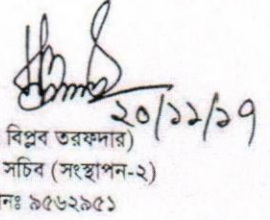 ২০/১১/১৭
বিপ্লব তরফদার)
সচিব (সংস্থাপন-২)
নঃ ৯৫৬২৯৫১